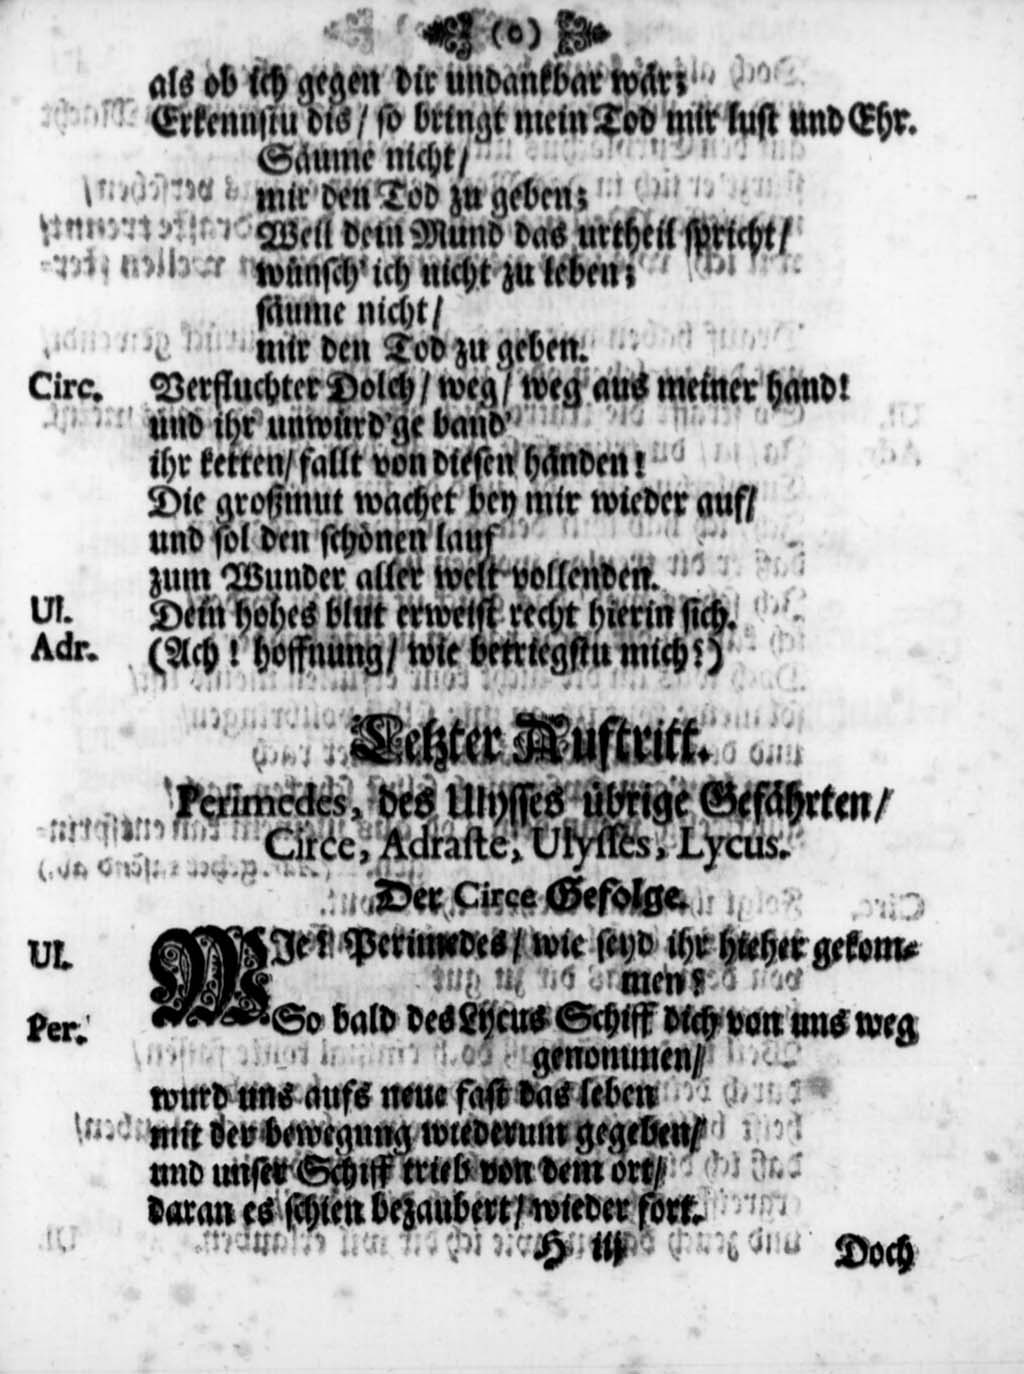 (o)
als ob ich gegen dir undankbar wär;
Erkennstu dis / so bringt mein Tod mir lust und Ehr.
Säume nicht /
mir den Tod zu geben;
Weil dein Mund das urtheil spricht /
wünsch' ich nicht zu leben;
säume nicht /
mir den Tod zu geben.
Circ. Verfluchter Dolch / weg / weg aus meiner hand!
und ihr unwürd'ge band'
ihr ketten / fallt von diesen händen!
Die großmut wachet bey mir wieder auf /
und sol den schönen lauf
zum Wunder aller welt vollenden.
Ul. Dein hohes blut erweist recht hierin sich.
Adr. (Ach! hoffnung / wie betriegstu mich?)
Letzter Auftritt.
Perimedes, des Ulysses übrige Gefährten /
Circe, Adraste, Ulysses, Lycus.
Der Circe Gefolge.
Ul. WJe? Perimedes / wie seyd ihr hieher gekom-
men?
Per. So bald des Lycus Schiff dich von uns weg
genommen /
wurd uns aufs neue fast das leben
mit der bewegung wiederum gegeben /
und unser Schiff trieb von dem ort /
daran es schien bezaubert / wieder fort.
H iij Doch